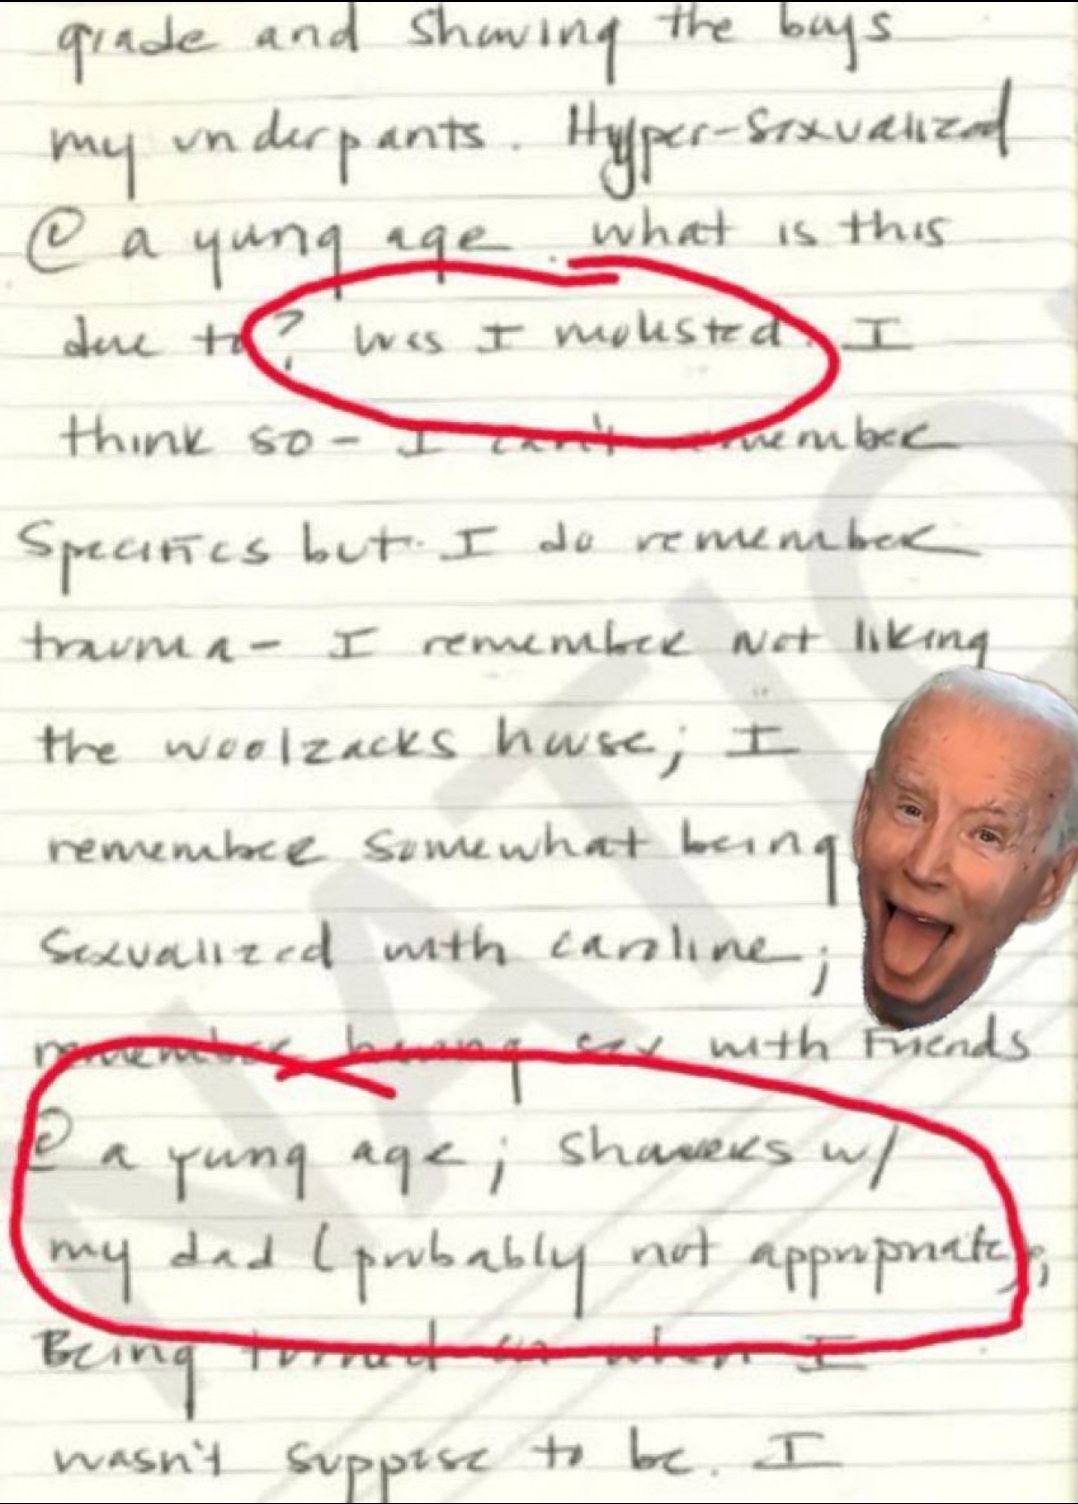 grade and showing the boys
my underpants. Hyper-sexualized
@ a yung age. what is this
due to? Was I molested. I
think so - I can't remember
specifics but I do remember
trauma - I remember not liking
the woolzacks house; I
remember somewhat being
sexualized with caroline;
remember having sex with friends
@ a yung age; showers w/
my dad (probably not appropriate);
Being turned on when I
wasn't suppose to be. I
NATIO